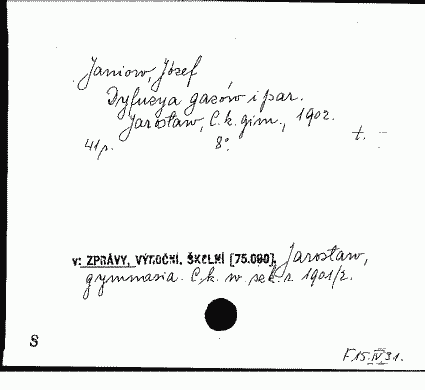 Janiow, Józef
Dyfuzya gazów i par.
Jarosław, C. k. gim., 1902.
t. –
41 p. 8°.
v: ZPRÁVY, VÝROČNÍ, ŠKOLNÍ [75.090], Jarosław,
gymnasia. C. k. w. s. r. 1901/2.
S
F 15. IV 31.